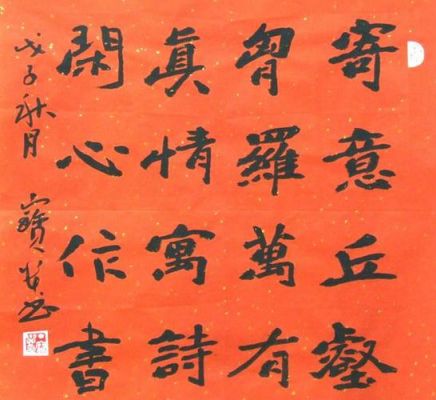 寄意丘壑
胷羅萬有
真情寓詩
閑心作書
戊子秋月
寶
書